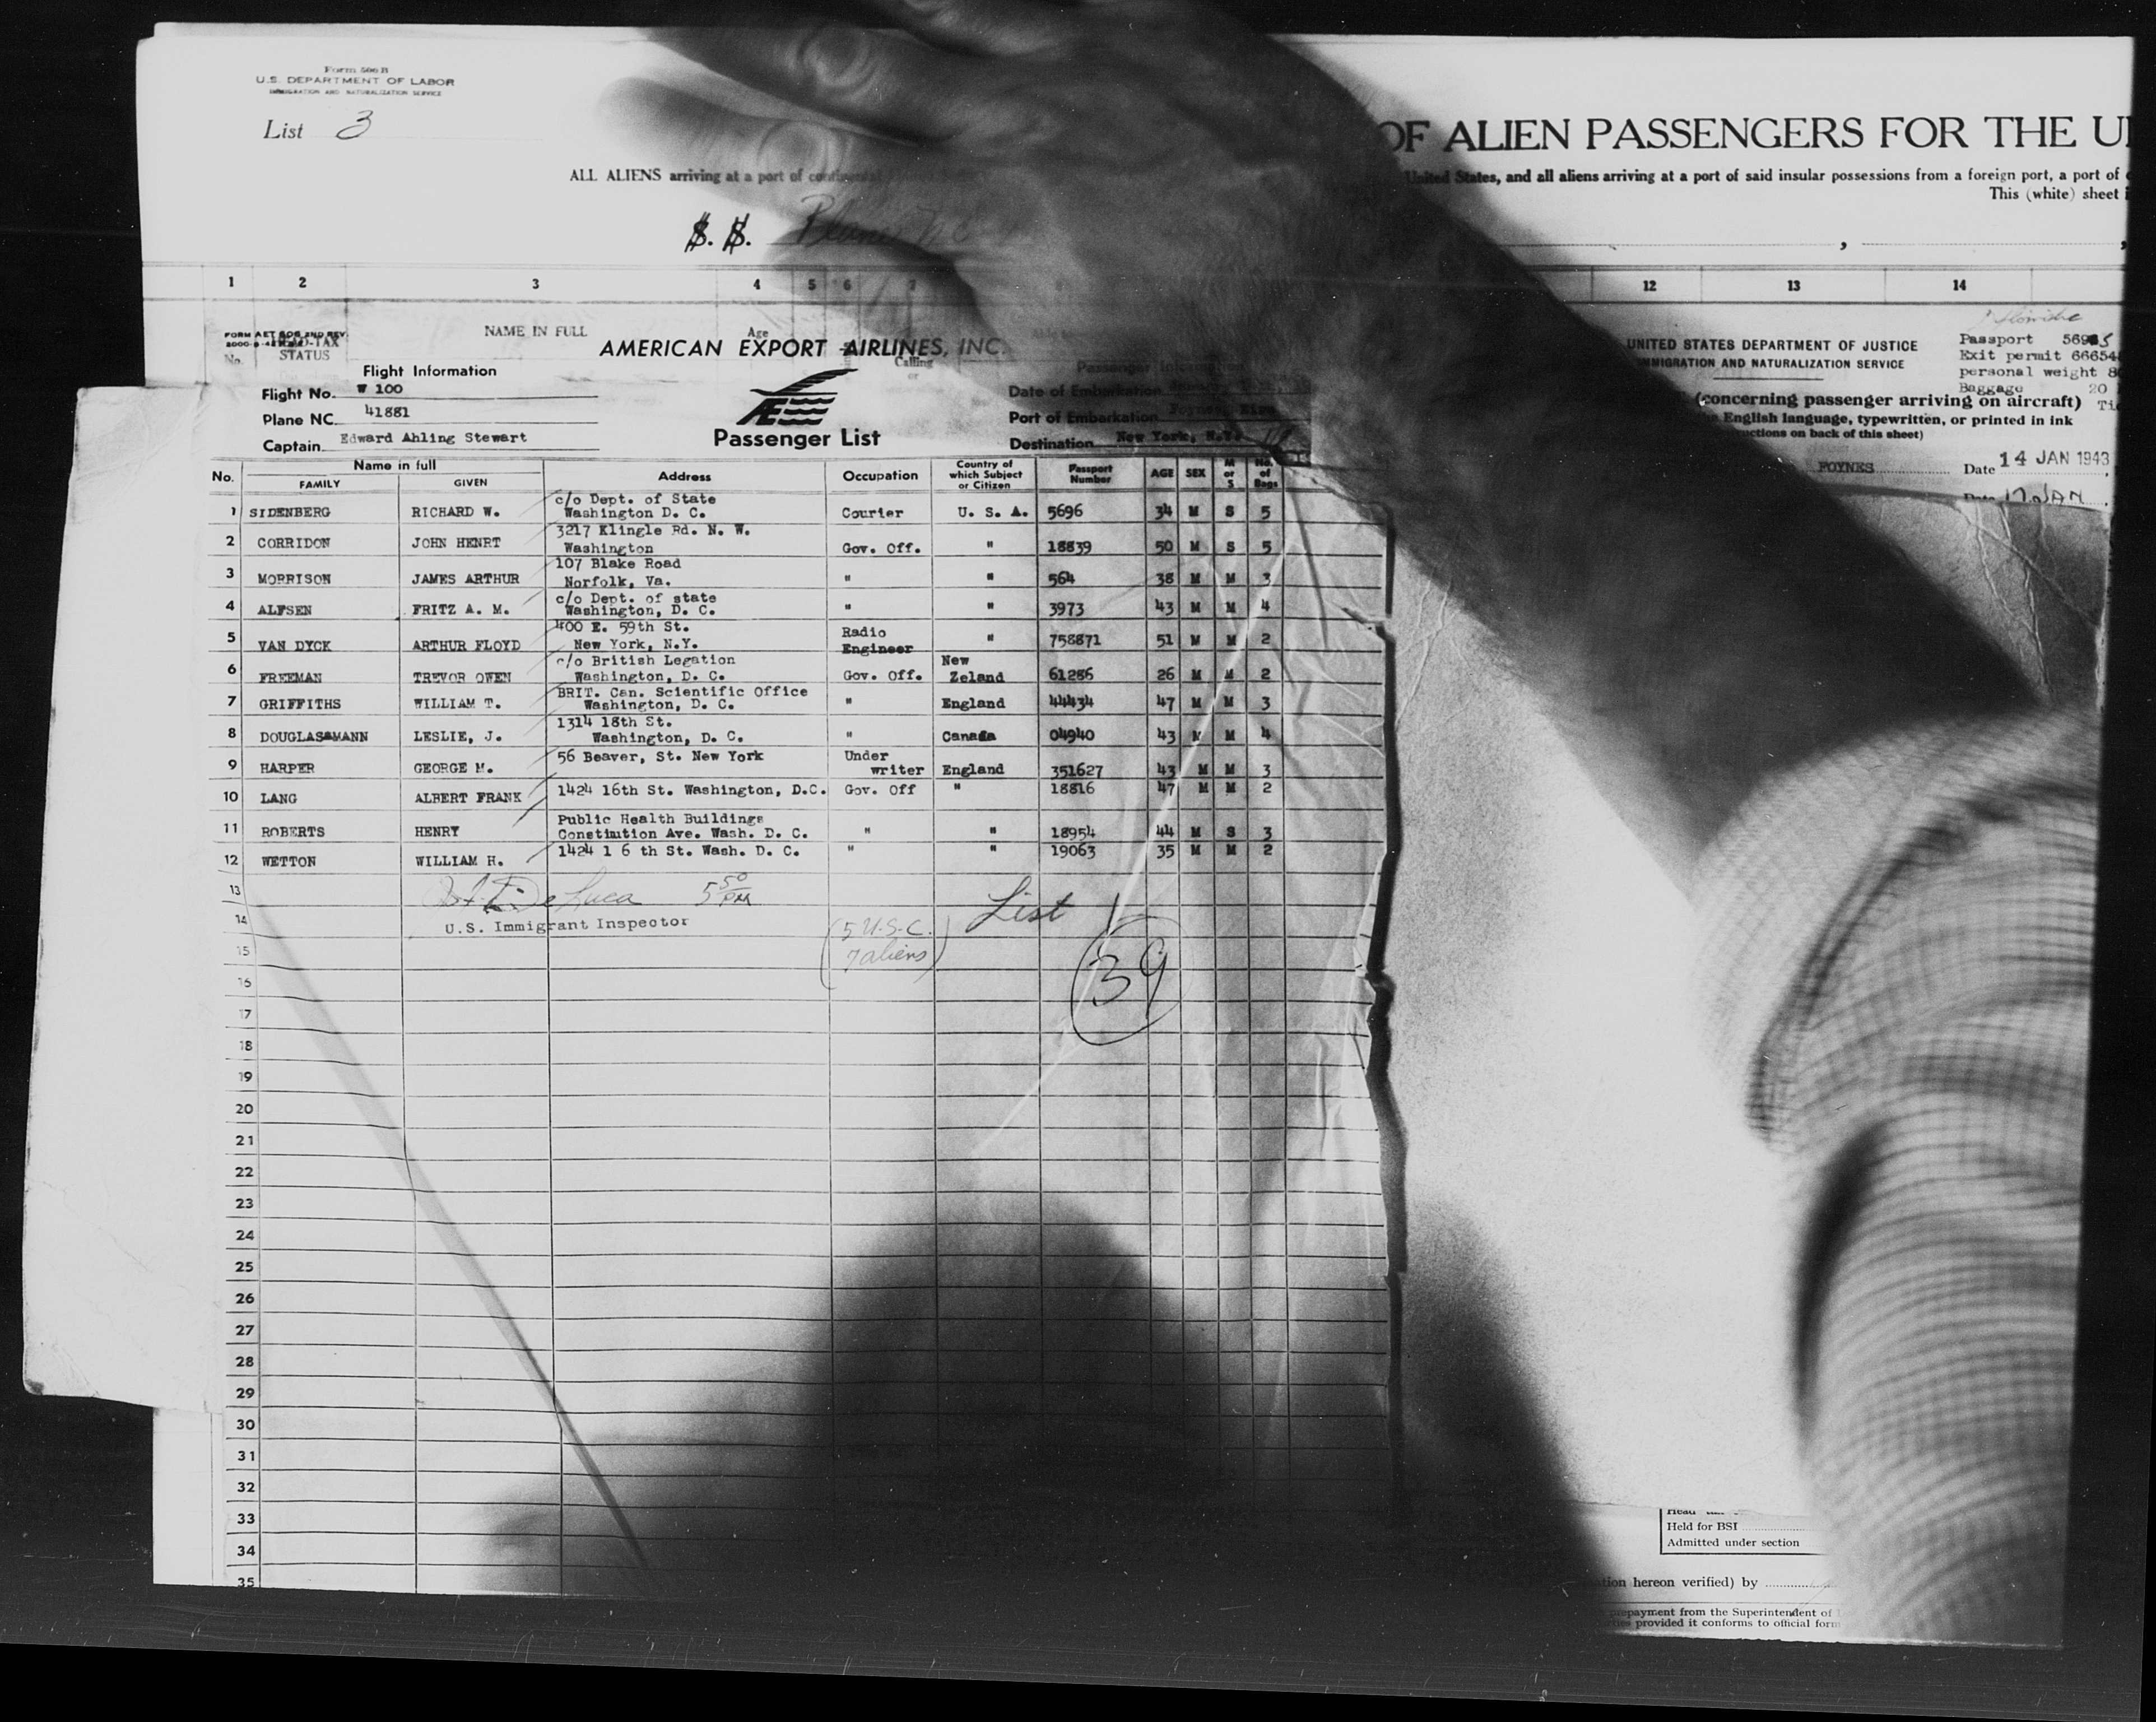 Form 506 B
U.S. DEPARTMENT OF LABOR
IMMIGRATION AND NATURALIZATION SERVICE
List 3
OF ALIEN PASSENGERS FOR THE U
ALL ALIENS arriving at a port of continental
United States, and all aliens arriving at a port of said insular possessions from a foreign port, a port of
This (white) sheet
S. S.
1 2 3 4 5 6 7 12 13 14
FORM AET 506 2ND REV.
HEAD-TAX
No. STATUS
NAME IN FULL
Age
Calling
or
AMERICAN EXPORT AIRLINES, INC.
Flight Information
Flight No. W 100
Plane NC 41881
Captain Edward Ahling Stewart
Passenger List
Passenger Information
Date of Embarkation
Port of Embarkation Foynes, Eire
Destination New York, N.Y.
UNITED STATES DEPARTMENT OF JUSTICE
IMMIGRATION AND NATURALIZATION SERVICE
Passport
Exit permit 66654
personal weight
Baggage 20
(concerning passenger arriving on aircraft)
English language, typewritten, or printed in ink
ctions on back of this sheet)
FOYNES Date 14 JAN 1943
Date 17 JAN
No. Name in full FAMILY GIVEN Address Occupation Country of which Subject or Citizen Passport Number AGE SEX M or S No. of Bags
1 SIDENBERG RICHARD W. c/o Dept. of State Washington D. C. Courier U. S. A. 5696 34 M S 5
2 CORRIDON JOHN HENRT 3217 Klingle Rd. N. W. Washington Gov. Off. " 18839 50 M S 5
3 MORRISON JAMES ARTHUR 107 Blake Road Norfolk, Va. " " 564 38 M M 3
4 ALFSEN FRITZ A. M. c/o Dept. of state Washington, D. C. " " 3973 43 M M 4
5 VAN DYCK ARTHUR FLOYD 400 E. 59th St. New York, N.Y. Radio Engineer " 758871 51 M M 2
6 FREEMAN TREVOR OWEN c/o British Legation Washington, D. C. Gov. Off. New Zeland 61286 26 M M 2
7 GRIFFITHS WILLIAM T. BRIT. Cen. Scientific Office Washington, D. C. " England 44434 47 M M 3
8 DOUGLASSMANN LESLIE, J. 1314 18th St. Washington, D. C. " Canada 04940 43 M M 4
9 HARPER GEORGE M. 56 Beaver, St. New York Under writer England 351627 43 M M 3
10 LANG ALBERT FRANK 1424 16th St. Washington, D.C. Gov. Off " 18816 47 M M 2
11 ROBERTS HENRY Public Health Buildings Constitution Ave. Wash. D. C. " " 18954 44 M S 3
12 WETTON WILLIAM H. 1424 1 6 th St. Wash. D. C. " " 19063 35 M M 2
13 De Luca 5 50 PM
14 U.S. Immigrant Inspector
List
(5 U.S.C.
7 aliens)
39
15
16
17
18
19
20
21
22
23
24
25
26
27
28
29
30
31
32
33
34
35
Held for BSI
Admitted under section
tion hereon verified) by
prepayment from the Superintendent of
provided it conforms to official form